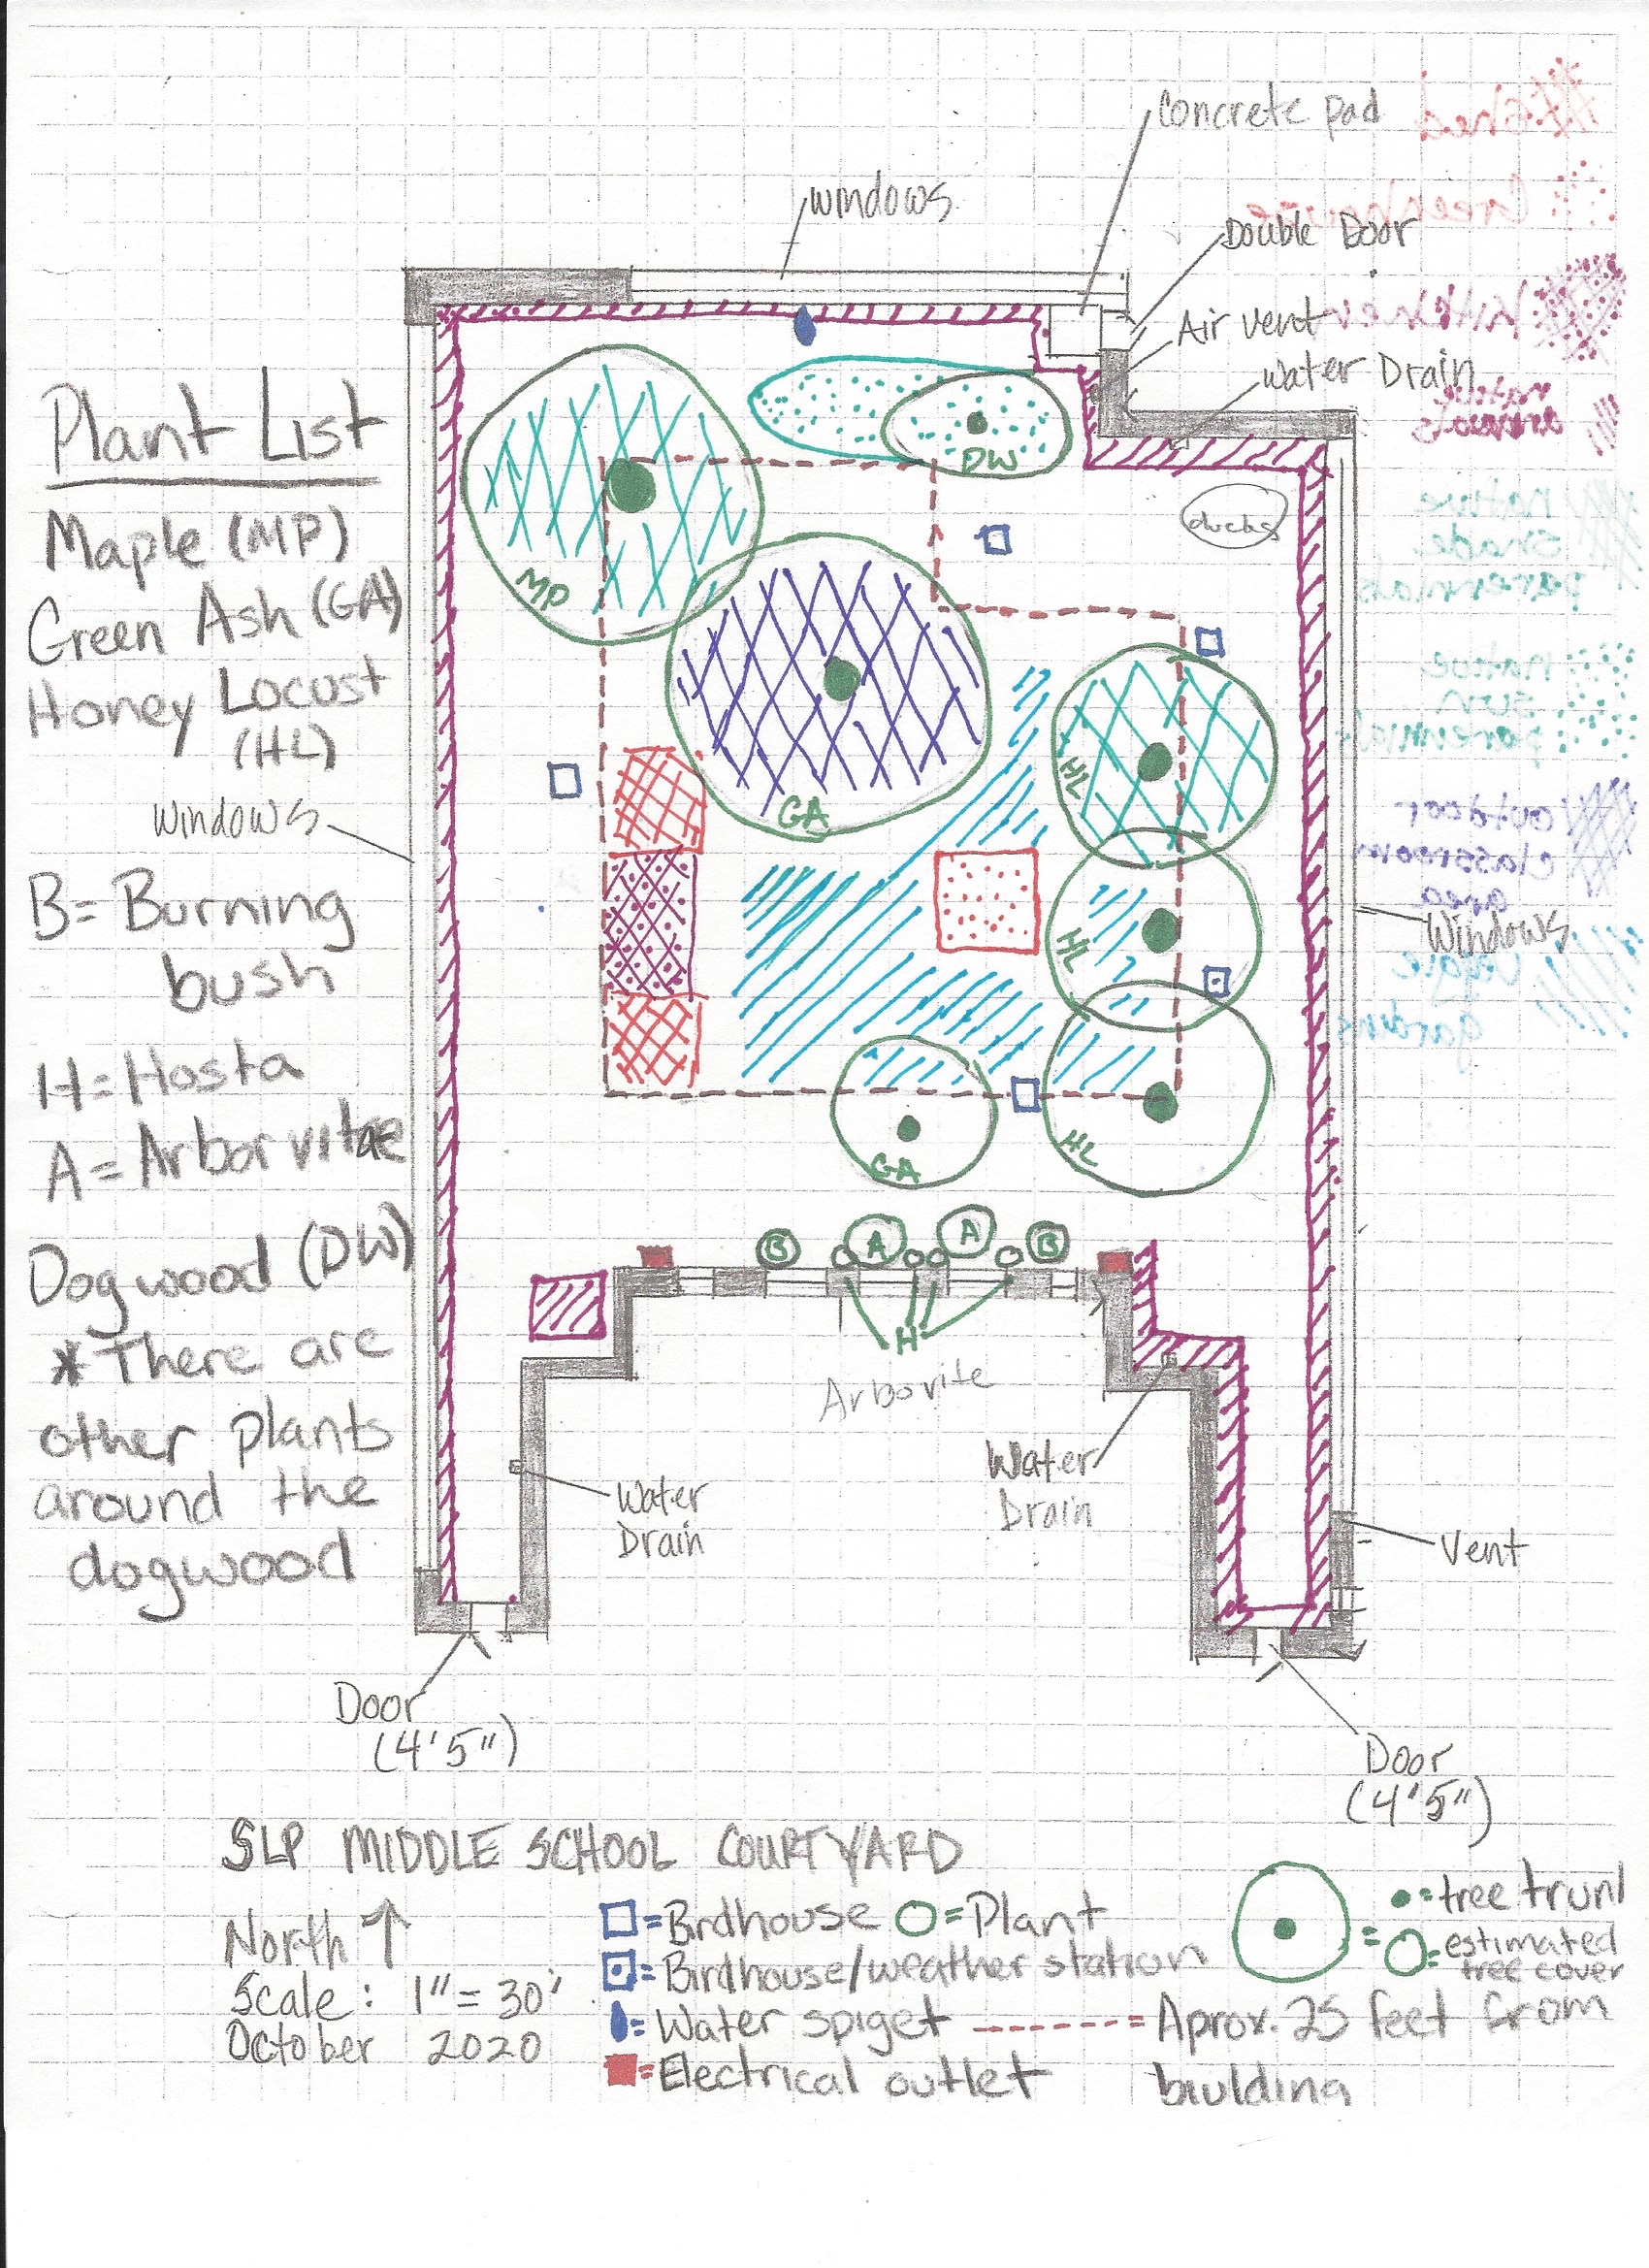 Concrete pad
shed
windows
Greenhouse
Double Door
Air vent
kitchen
water Drain
native
annuals
Plant List
DW
ducks
native
shade
perennials
Maple (MP)
MP
Green Ash (GA)
Honey Locust
(HL)
native
sun
perennials
HL
GA
windows
outdoor
classroom
area
B= Burning
bush
HL
Windows
gardens
H= Hosta
A= Arborvitae
HL
GA
Dogwood (DW)
B A A B
*There are
other plants
around the
dogwood
H
Arborvite
Water
Drain
Water
Drain
Vent
Door
(4'5")
Door
(4'5")
SLP MIDDLE SCHOOL COURTYARD
North ↑
Scale: 1" = 30'
October 2020
=Birdhouse =Plant
=Birdhouse/weather station
= Water spiget
=Electrical outlet
= Aprox. 25 feet from
biulding
= tree trunk
= estimated
tree cover